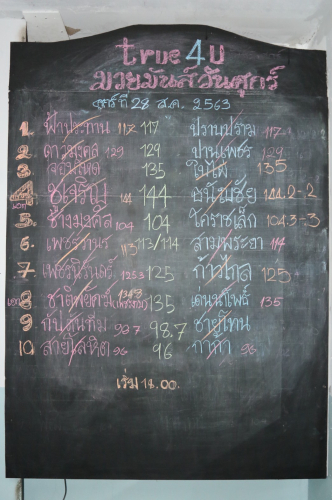 true4U
มวยมันส์วันศุกร์
ศุกร์ที่ 28 ส.ค. 2563
1. ฟ้าประทาน 117 117 ปราบปราม 117
2. ดาวมงคล 129 129 ปานเพชร 129
3. 135 ใบไผ่ 135
4. ชูเจริญ 144 144 ธนัญชัย 144.2-2
5. ช้างมงคล 104 104 โคราชเล็ก 104.3-3
6. 113 113/114 สามพระยา 114
7 เพชรนิรันดร์ 125.3 125 ก้าวไกล 125
8 ชาติพยัคฆ์ 134.8 135 เด่นนโพธิ์ 135
9 ทับทิม 98.7 98.7 ชายโทน
10 สายโลหิต 96 96 กาก้า 96
เริ่ม 18.00.